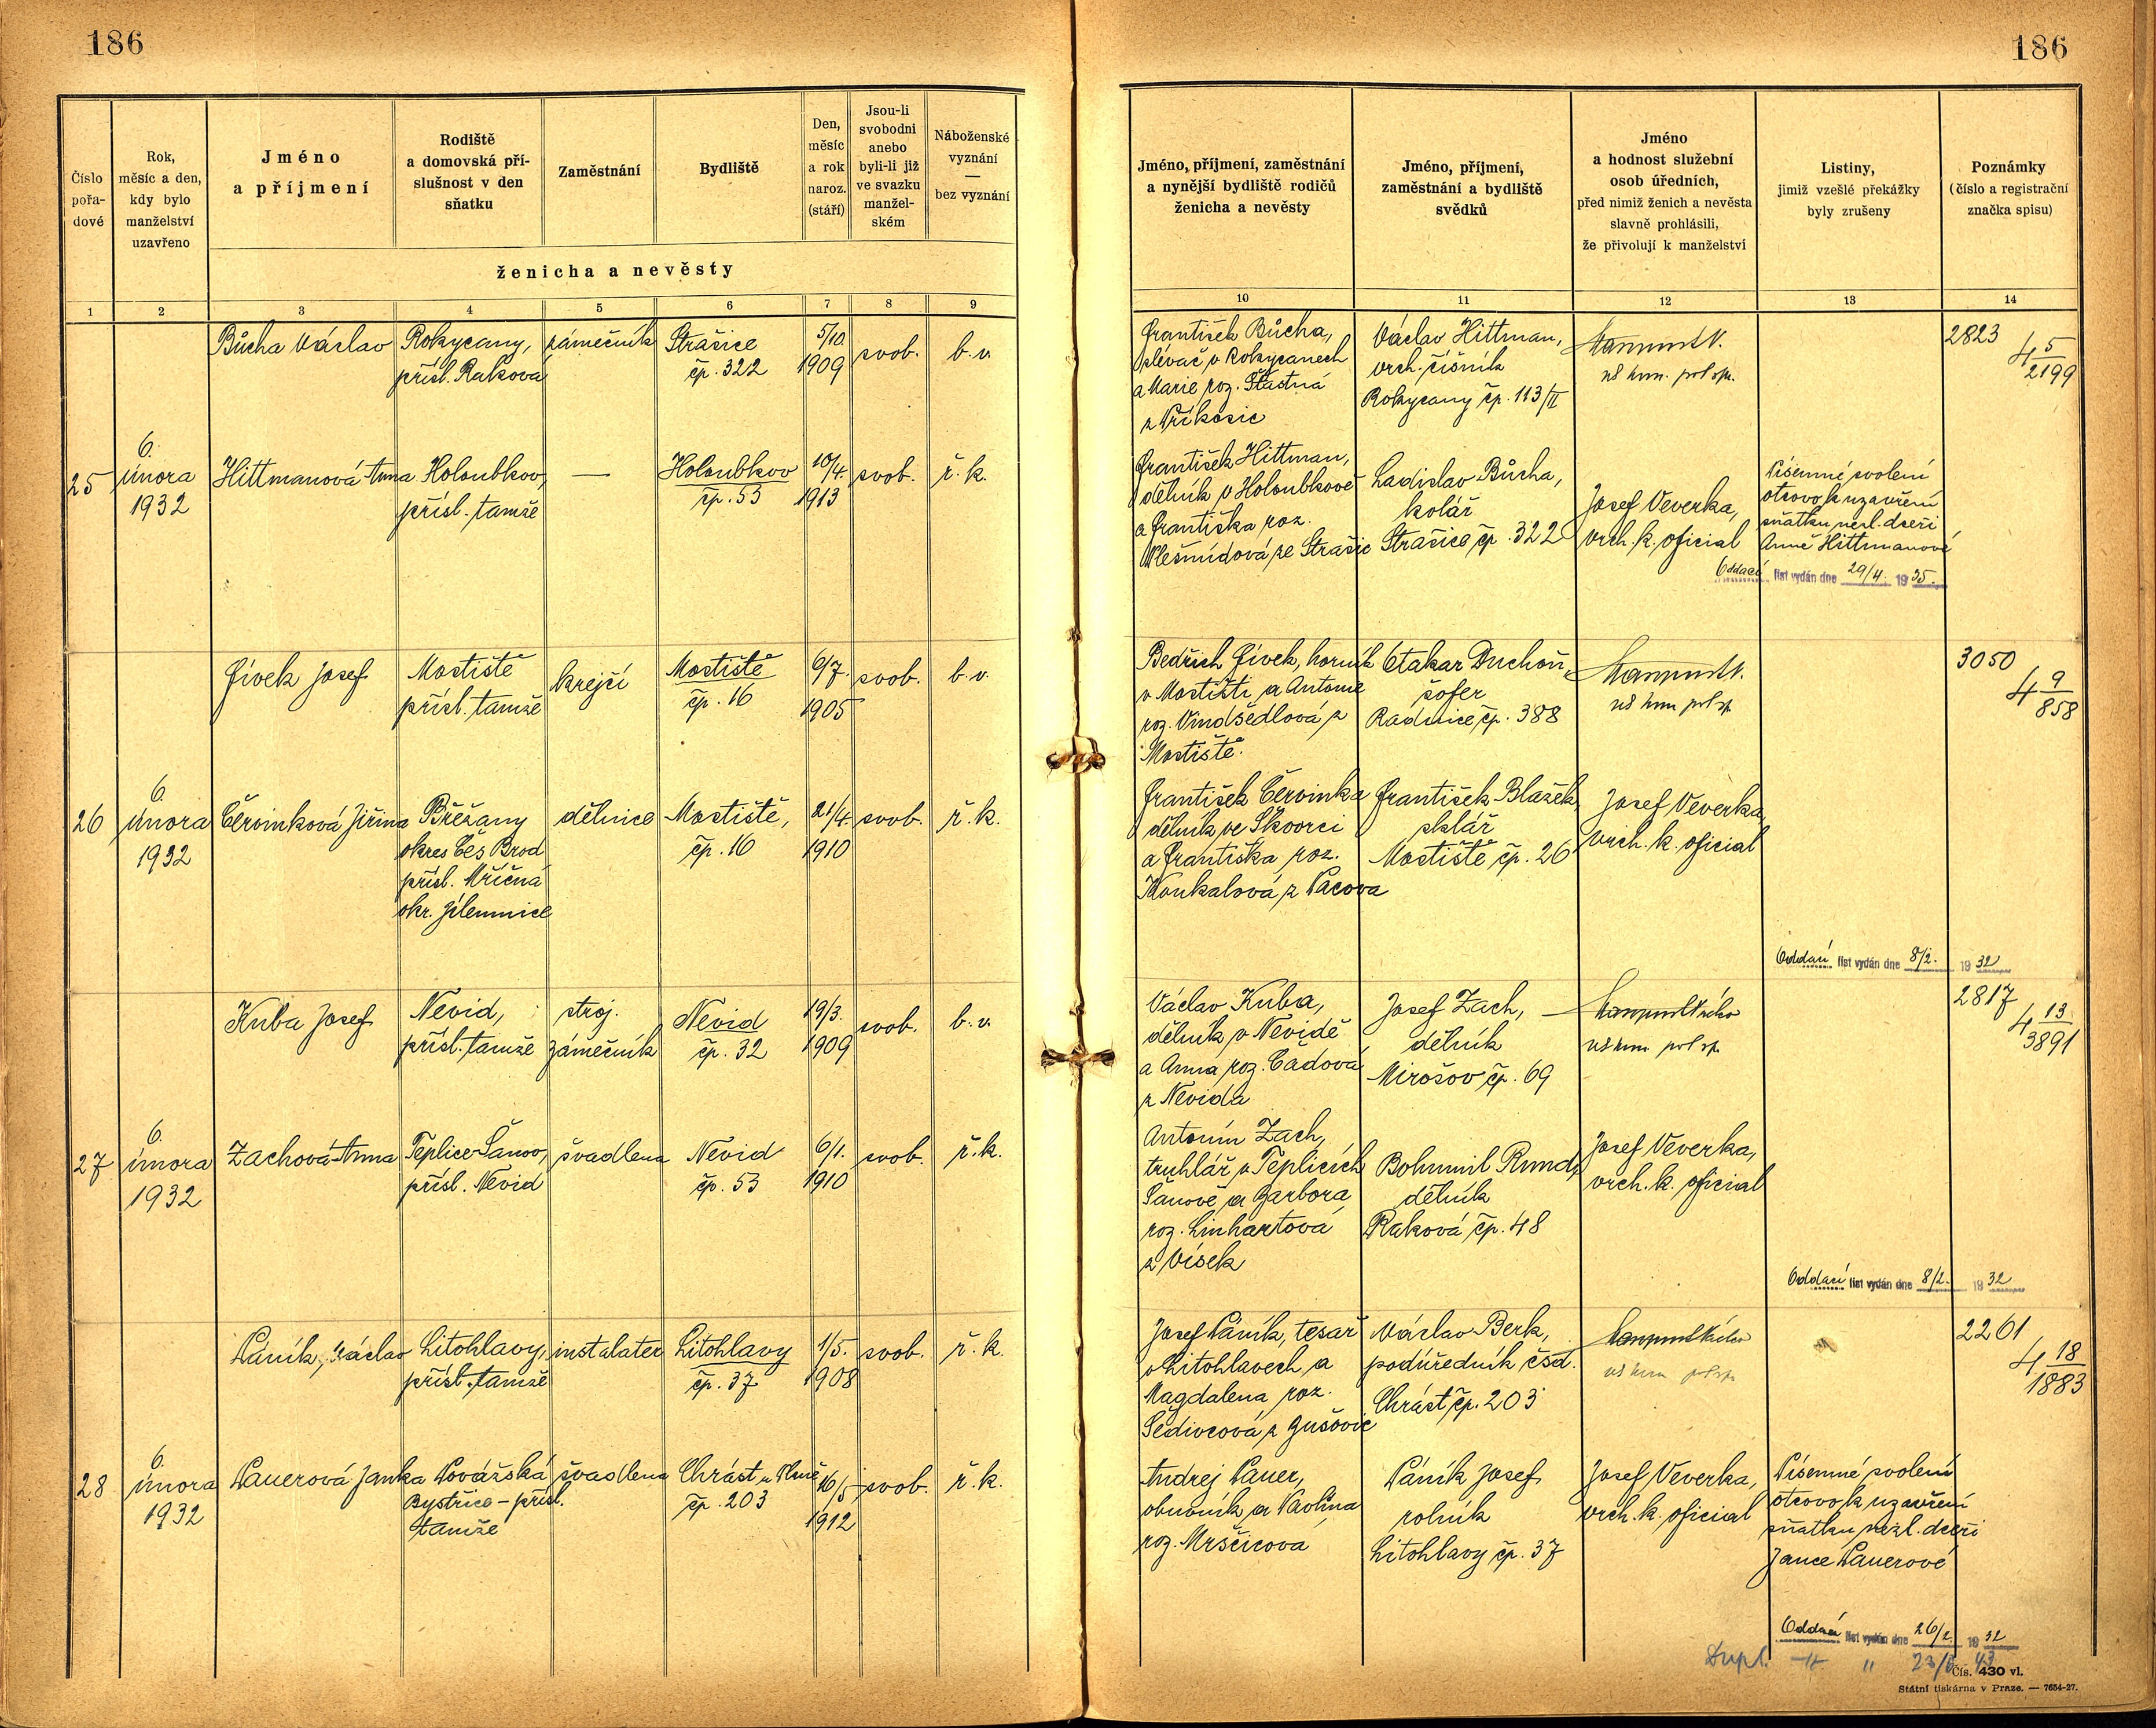 186
186
Číslo
pořa-
dové
Rok,
měsíc a den,
kdy bylo
manželství
uzavřeno
Jméno
a příjmení
Rodiště
a domovská pří-
slušnost v den
sňatku
Zaměstnání
Bydliště
Den,
měsíc
a rok
naroz.
(stáří)
Jsou-li
svobodni
anebo
byli-li již
ve svazku
manžel-
ském
Náboženské
vyznání
—
bez vyznání
ženicha a nevěsty
Jméno, příjmení, zaměstnání
a nynější bydliště rodičů
ženicha a nevěsty
Jméno, příjmení,
zaměstnání a bydliště
svědků
Jméno
a hodnost služební
osob úředních,
před nimiž ženich a nevěsta
slavně prohlásili,
že přivolují k manželství
Listiny,
jimiž vzešlé překážky
byly zrušeny
Poznámky
(číslo a registrační
značka spisu)
1 2 3 4 5 6 7 8 9
10 11 12 13 14
Bůcha Václav
Rokycany,
přísl. Raková
zámečník
Strašice
čp. 322
5/10.
1909
svob.
b. v.
František Bůcha,
slévač v Rokycanech
a Marie roz. Šťastná
z Příkosic
Václav Hittman,
vrch. číšník
Rokycany čp. 113/II
2823
4 5/2199
25
6.
února
1932
Hittmanová Anna
Holoubkov,
přísl. tamže
—
Holoubkov
čp. 55
10/4.
1913
svob.
ř. k.
František Hittman,
dělník v Holoubkově
a Františka roz.
Vlešmídová ze Strašic
Ladislav Bůcha,
kolář
Strašice čp. 322
Josef Veverka,
vrch. k. oficial
Písemné svolení
otcovo k uzavření
sňatku nezl. dceři
Anně Hittmanové
Oddací list vydán dne 29/4. 1935.
Fívek Josef
Mostiště
přísl. tamže
krejčí
Mostiště
čp. 16
6/7.
1905
svob.
b. v.
Bedřich Fívek, horník
v Mostišti a Antonie
roz. Vindšedlová z
Mostiště.
Otakar Duchoň,
šofer
Radnice čp. 388
3050
4 9/858
26
6.
února
1932
Červinková Jiřina
Břežany
okres Čes Brod
přísl. Mříčná
okr. Jilemnice
dělnice
Mostiště,
čp. 16
21/4.
1910
svob.
ř. k.
František Červinka
dělník ve Škvorci
a Františka roz.
Koukalová z Pacova
František Blažek
sklář
Mostiště čp. 26
Josef Veverka,
vrch. k. oficial
Oddací list vydán dne 8/2. 1932
Kuba Josef
Nevid,
přísl. tamže
stroj.
zámečník
Nevid
čp. 32
19/3.
1909
svob.
b. v.
Václav Kuba,
dělník v Nevidě
a Anna roz. Čadová
z Nevida
Josef Zach,
dělník
Mirošov čp. 69
2817
4 13/3891
27
6.
února
1932
Zachová Anna
Teplice Šanov,
přísl. Nevid
švadlena
Nevid
čp. 53
6/1.
1910
svob.
ř. k.
Antonín Zach,
truhlář v Teplicích
Šanově a Barbora
roz. Linhartová
z Vísek
Bohumil Rund,
dělník
Raková čp. 48
Josef Veverka,
vrch. k. oficial
Oddací list vydán dne 8/2. 1932
Páník, Václav
Litohlavy,
přísl. tamže
instalater
Litohlavy
čp. 37
1/5.
1908
svob.
ř. k.
Josef Páník, tesař
v Litohlavech a
Magdalena roz.
Šedivcová z Bušovic
Václav Berk,
podúředník čsd.
Chrást čp. 203
2261
4 18/1883
28
6.
února
1932
Pauerová Janka
Považská
Bystrice - přísl.
tamže
švadlena
Chrást u Plzně
čp. 203
16/5
1912
svob.
ř. k.
Andrej Pauer,
obuvník a Paolina
roz. Mrščicová
Páník Josef
rolník
Litohlavy čp. 37
Josef Veverka,
vrch. k. oficial
Písemné svolení
otcovo k uzavření
sňatku nezl. dceři
Jance Pauerové
Oddací list vydán dne 26/2. 1932
Dupl. -"- " 23/6 43
Čís. 430 vl.
Státní tiskárna v Praze. — 7654-27.